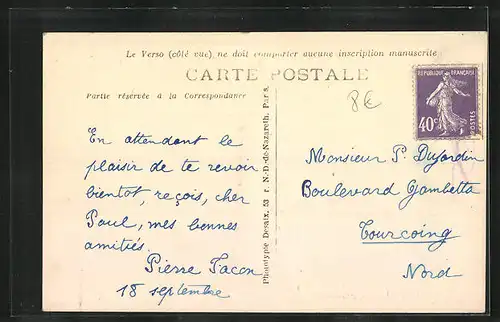 Le Verso (côté vue) ne doit comporter aucune inscription manuscrite
CARTE POSTALE
Partie réservée à la Correspondance
8€
RÉPUBLIQUE FRANÇAISE
40c
POSTES
En attendant le
plaisir de te revoir
bientôt, reçois, cher
Paul, mes bonnes
amitiés.
Pierre Facon
18 septembre
Phototypie Desaix, 53 r. N.-D.-de-Nazareth, Paris
Monsieur P. Dujardin
Boulevard Gambetta
Tourcoing
Nord